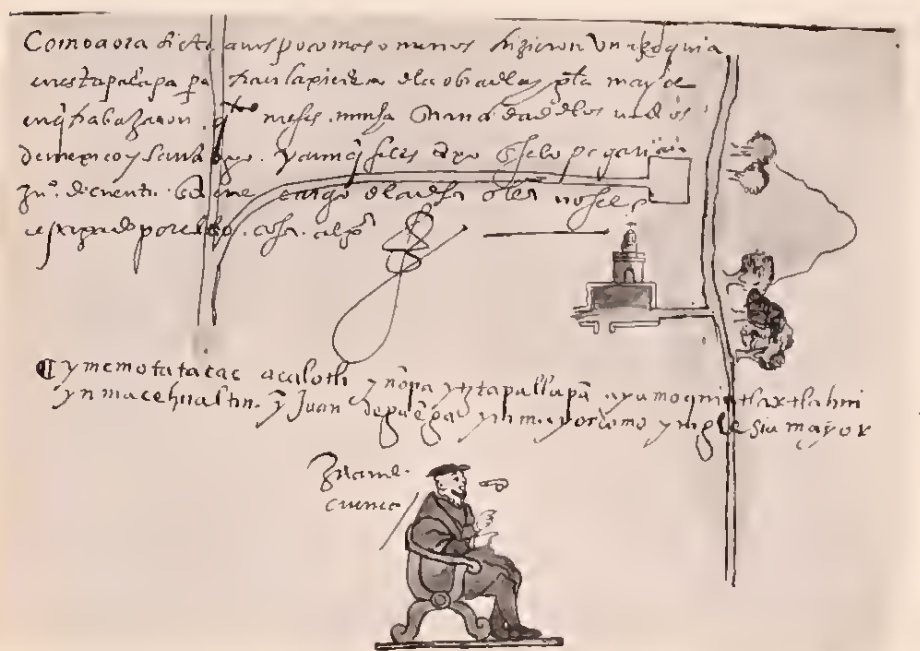 Como aora siete años poco mas o menos hizieron un açequia
en estapalapa pa traer la piedra de la obra de la ygla mayor
en q trabaxaron qtro meses. mucha cantidad de los yndios
de mexico y santiago. y aunq se les dixo q se lo pagarian
Juo. de cuenca q tiene cargo de la dha obra no se les
a pagado por ello. cosa algª
yn momotatacac acalotli ytztapallapã ayamo quintlaxtlahui
yn macehualtin. y Juan de yn mayordomo yn iglesia mayor
Juan de
cuenca